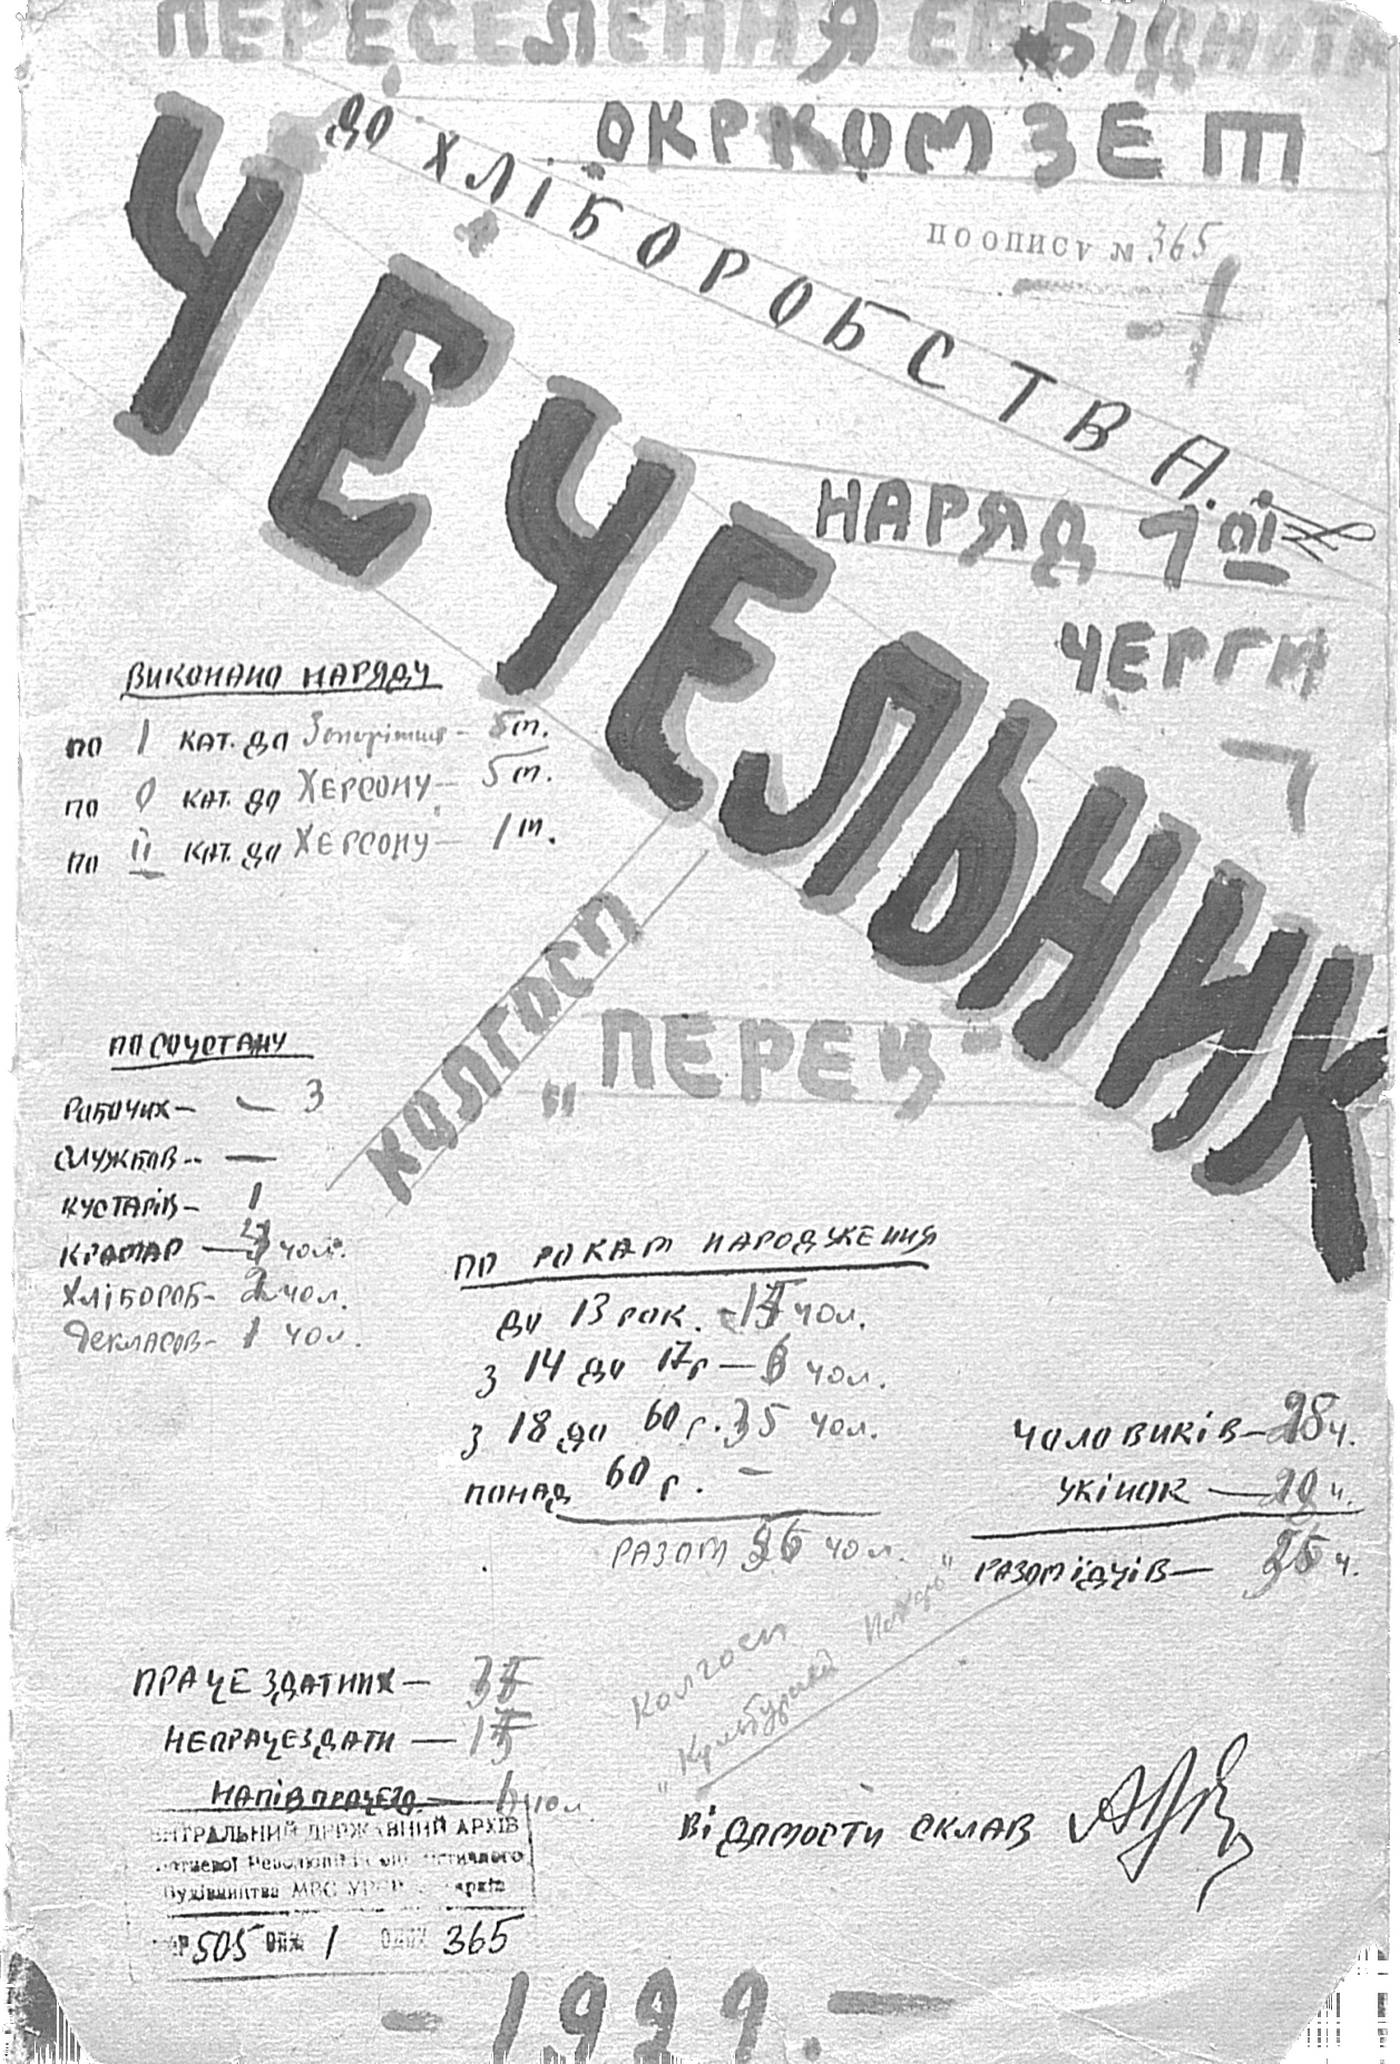 ПЕРЕСЕЛЕННЯ ЄВ БІДНОТИ
ДО ХЛІБОРОБСТВА.
ОКРКОМЗЕТ
по опису № 365
ЧЕЧЕЛЬНИК
НАРЯД 1ОЇ
ЧЕРГИ
ВИКОНАНО НАРЯДУ
по І кат. до Запоріжжя - 5 т.
по 0 кат. до ХЕРСОНУ - 5 т.
по ІІ кат. до ХЕРСОНУ - 1 т.
КОЛГОСП
„ПЕРЕЦ"
ПО СОЦСТАНУ
РОБОЧИХ - 3
СЛУЖБОВ -
КУСТАРІВ - 1
КРАМАР - чол.
ХЛІБОРОБ - 2 чол.
Декласов - 1 чол.
ПО РОКАМ НАРОДЖЕННЯ
до 13 рок. - чол.
з 14 до 17 р - 6 чол.
з 18 до 60 г. 35 чол.
понад 60 г. -
РАЗОМ 56 чол.
ЧОЛОВИКІВ - 28 ч.
ЖІНОК - 28 ч.
РАЗОМ ЇДЦІВ - 56 ч.
Колгосп
ПРАЦЕЗДАТНИХ -
НЕПРАЦЕЗДАТН -
НАПІВПРАЦЕЗД. - 6 чол.
ВІДОМОСТИ СКЛАВ
ЦЕНТРАЛЬНИЙ ДЕРЖАВНИЙ АРХІВ
Жовтневої Революції і Соціалістичного
Будівництва МВС УРСР м. Харків
Ф Р 505 Опис 1 Од.зб 365
- 1929. -